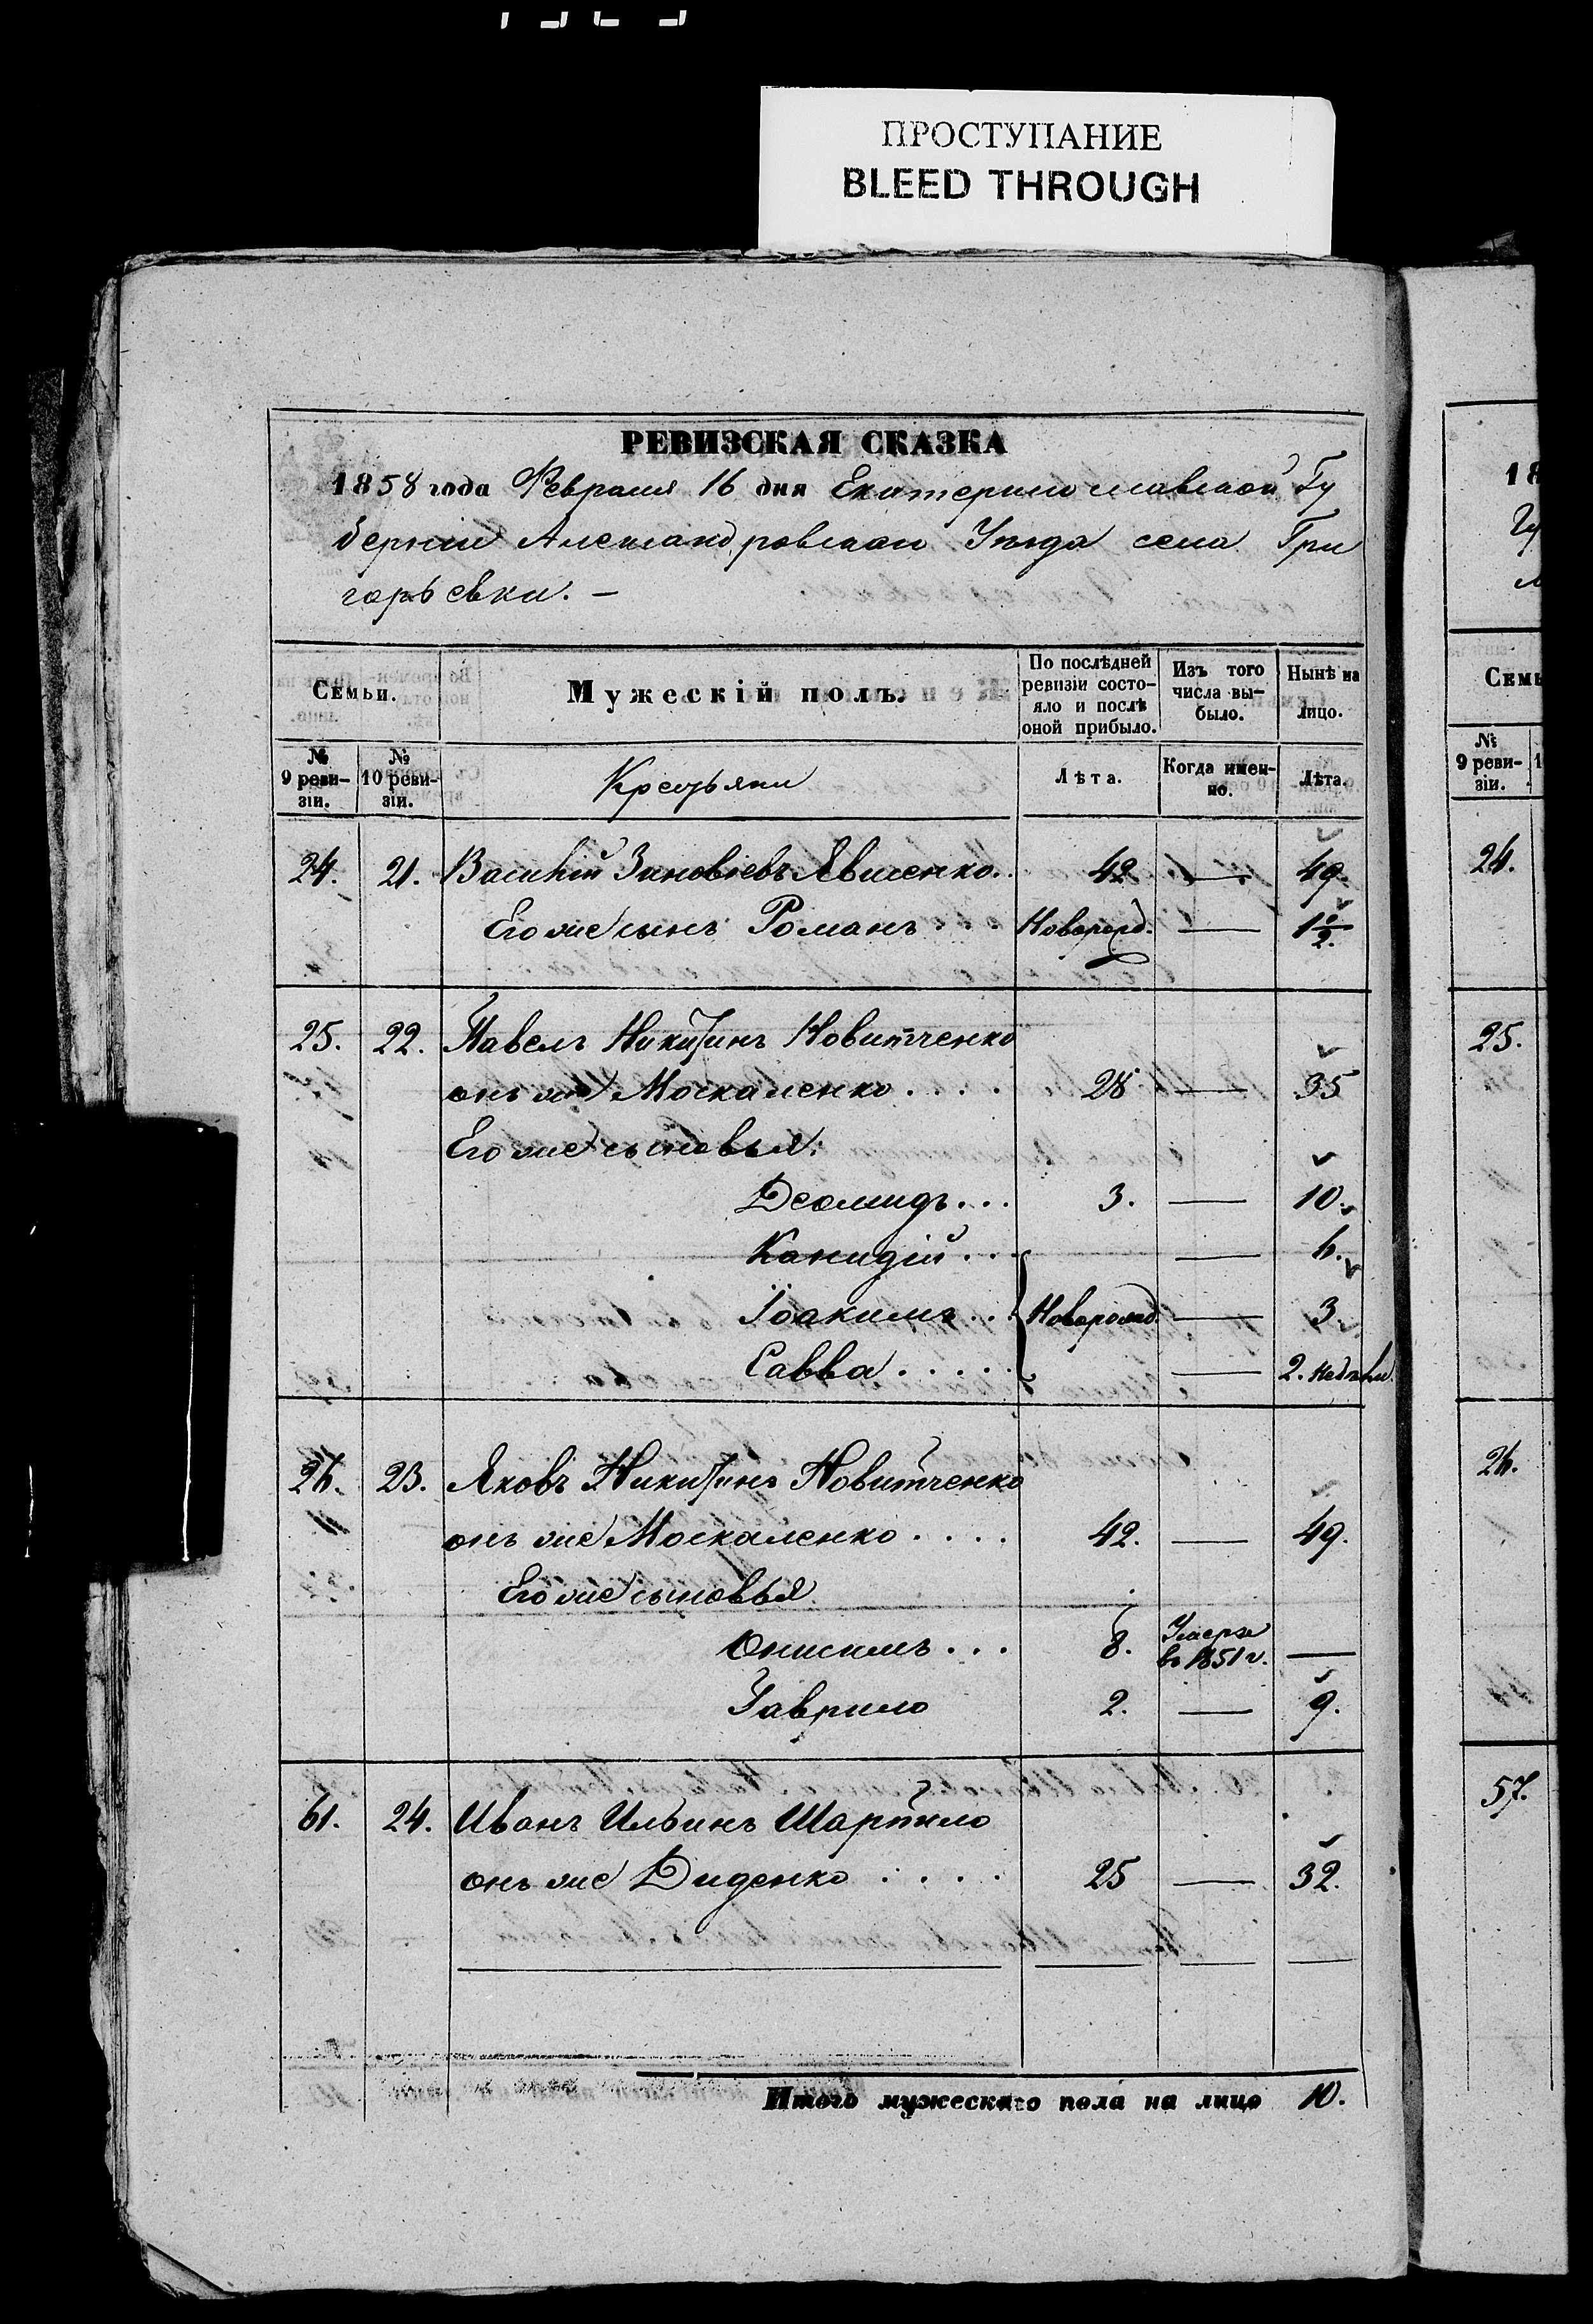 ПРОСТУПАНИЕ
BLEED THROUGH
РЕВИЗСКАЯ СКАЗКА
1858 года Февраля 16 дня Екатеринославской Гу
берніи Александровскаго Уѣзда села Гри
горьевки. —
Семьи.
Мужескій полъ.
По послѣдней ревизіи состо-
яло и послѣ оной прибыло.
Изъ того числа вы-
было.
Нынѣ на лицо.
№ 9 реви-
зіи.
№ 10 реви-
зіи.
Крестьяни
Лѣта.
Когда имен-
но.
Лѣта.
24. 21. Василій Зиновіевъ Явченко.. 42 — 49.
Его же сынъ Романъ . . . Новорожд. — 1½.
25. 22. Павелъ Никитинъ Новитченко
онъ же Москаленко . . . . 28 — 35
Его же сыновья:
Деомидъ . . . 3. — 10.
Канидій . . . — 6.
Іоакимъ . . Новорожд. — 3.
Савва . . . . . — 2. недѣли.
26. 23. Яковъ Никитинъ Новитченко
онъ же Москаленко . . . . 42. — 49.
Его же сыновья
Онисимъ . . . 8. Умеръ въ 1851 г. —
Гаврило 2. — 9.
61. 24. Иванъ Ильинъ Шарпило
онъ же Диденко . . . . 25 — 32.
Итого мужескаго пола на лицо 10.
18
Семь
№ 9 реви-
зіи.
24.
25.
26.
57.